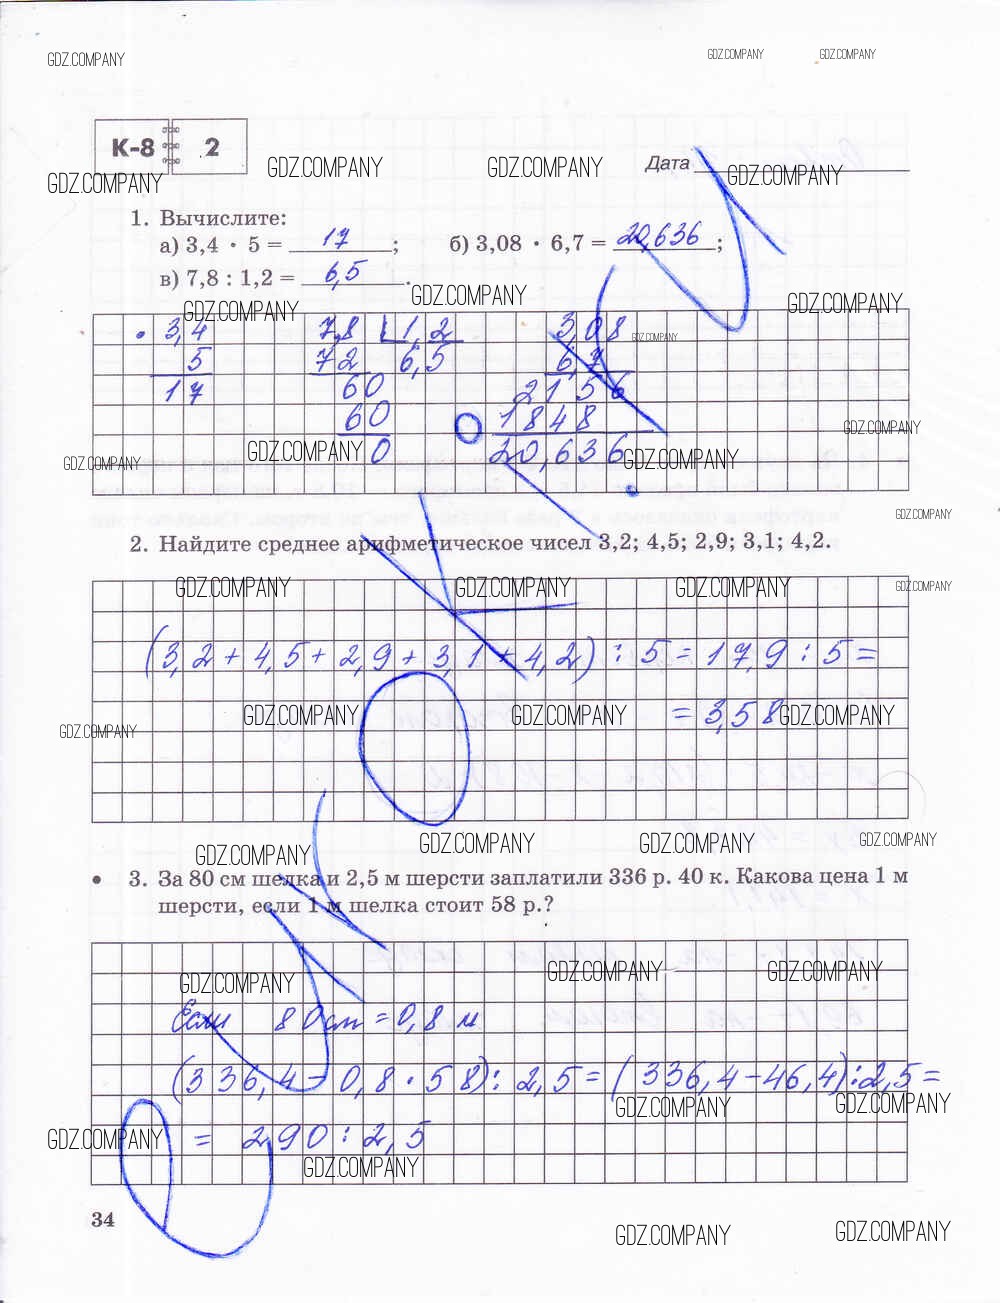 GDZ.COMPANY GDZ.COMPANY GDZ.COMPANY
К-8 2
GDZ.COMPANY GDZ.COMPANY GDZ.COMPANY Дата GDZ.COMPANY
1. Вычислите:
а) 3,4 · 5 = 17; б) 3,08 · 6,7 = 20,636;
в) 7,8 : 1,2 = 6,5.
GDZ.COMPANY GDZ.COMPANY GDZ.COMPANY
3,4 7,8 1,2 3,08 GDZ.COMPANY
5 72 6,5 6,7
17 60 2156
60 1848 GDZ.COMPANY
GDZ.COMPANY GDZ.COMPANY 0 20,636 GDZ.COMPANY
GDZ.COMPANY
2. Найдите среднее арифметическое чисел 3,2; 4,5; 2,9; 3,1; 4,2.
GDZ.COMPANY GDZ.COMPANY GDZ.COMPANY GDZ.COMPANY
(3,2 + 4,5 + 2,9 + 3,1 + 4,2) : 5 = 17,9 : 5 =
GDZ.COMPANY GDZ.COMPANY GDZ.COMPANY = 3,58 GDZ.COMPANY
GDZ.COMPANY GDZ.COMPANY GDZ.COMPANY GDZ.COMPANY
• 3. За 80 см шелка и 2,5 м шерсти заплатили 336 р. 40 к. Какова цена 1 м
шерсти, если 1 м шелка стоит 58 р.?
GDZ.COMPANY GDZ.COMPANY GDZ.COMPANY
Если 80 см = 0,8 м
(336,4 - 0,8 · 58) : 2,5 = (336,4 - 46,4) : 2,5 =
GDZ.COMPANY GDZ.COMPANY
GDZ.COMPANY = 290 : 2,5
GDZ.COMPANY
34
GDZ.COMPANY GDZ.COMPANY